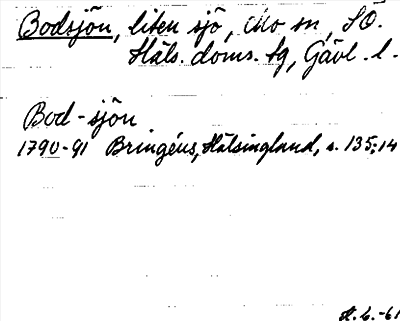 Bodsjön, liten sjö, Mo sn, SÖ.
Häls. doms. tg, Gävl. l.
Bod-sjön
1790-91 Bringéus, Hälsingland, s. 135; 14
H. G. -61